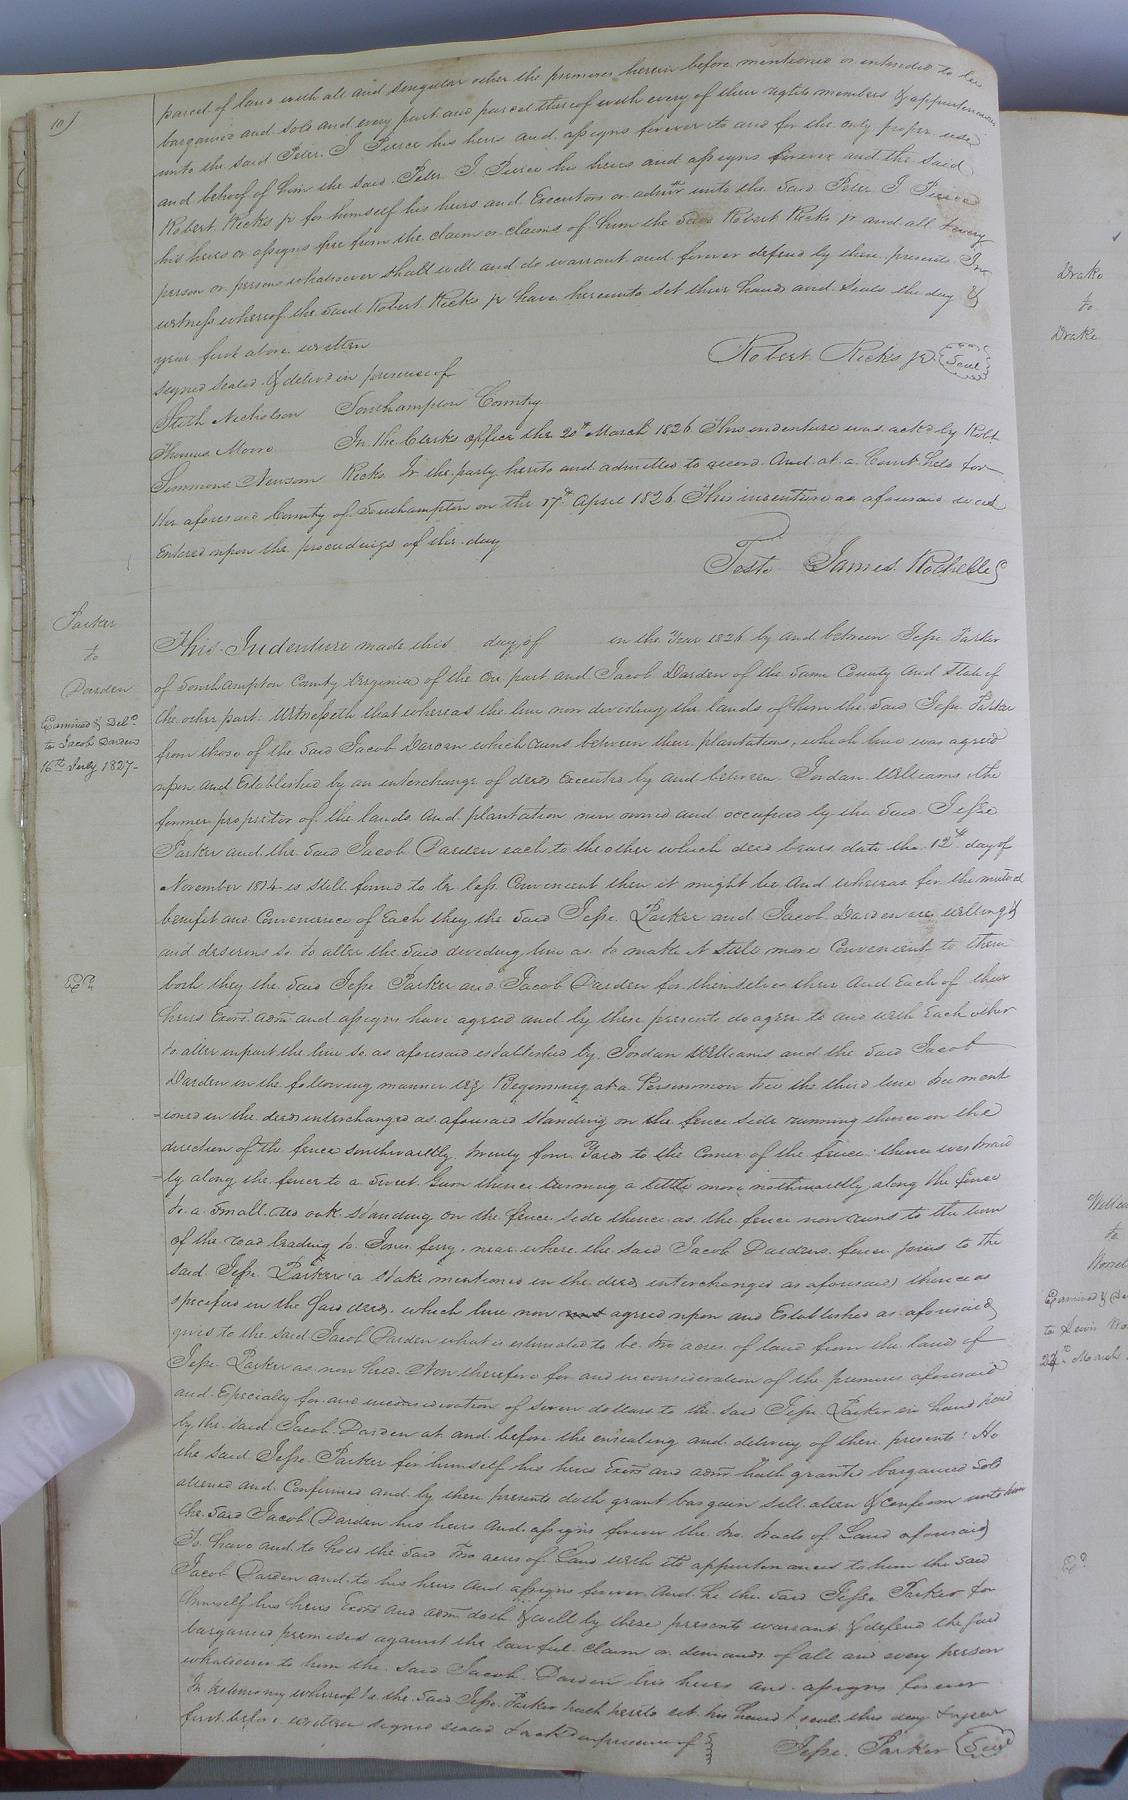 101
parcel of land with all and singular other the premises herein before mentioned or intended to be
bargained and sold and every part and parcel thereof with every of their rights members & appurtenances
unto the said Peter J Pierce his heirs and assigns forever to and for the only proper use
and behoof of him the said Peter J Pierce his heirs and assigns forever and the said
Robert Ricks jr for himself his heirs and Executors or admrs unto the said Peter J Pierce
his heirs or assigns free from the claim or claims of him the said Robert Ricks jr and all & every
person or persons whatsoever shall will and do warrant and forever defend by these presents In
witness whereof the said Robert Ricks jr have hereunto set their hand and seals the day &
year first above written
Robert Ricks jr Seal
signed sealed & deliverd in presence of
Nicholson Southampton County
Thomas In the Clerks office the 20th March 1826 This indenture was ackd by Robt
Simmons Newsom Ricks Jr the party hereto and admitted to record And at a Court held for
the aforesaid County of Southampton on the 17th April 1826 This indenture as aforesaid was
Entered upon the proceedings of this day
Teste James Rochelle
Parker
to
Darden
Examined & Deld
to Jacob Darden
16th July 1827
This Indenture made this day of in the Year 1826 by and between Jesse Parker
of Southampton County Virginia of the one part and Jacob Darden of the same County and State of
the other part. Witnesseth that whereas the line now dividing the lands of him the said Jesse Parker
from those of the said Jacob Darden which runs between their plantations, which line was agreed
upon and Established by an interchange of deed Executed by and between Jordan Williams the
former proprietor of the lands and plantation now owned and occupied by the said Jesse
Parker and the said Jacob Darden each to the other which deed bears date the 12th day of
November 1814 is still found to be less Convenient then it might be And whereas for the mutual
benefit and Convenience of Each they the said Jesse Parker and Jacob Darden are willing &
and desirous so to alter the said dividing line as to make it still more Convenient to them
both they the said Jesse Parker and Jacob Darden for themselves their And Each of their
heirs Exors admrs and assigns have agreed and by these presents do agree to and with Each other
to alter in part the line so as aforesaid established by Jordan Williams and the said Jacob
Darden in the following manner viz Beginning at a Persimmon tree the third line tree ment
-ioned in the deed interchanged as aforesaid standing on the fence side running thence in the
direction of the fence southwardly twenty four Yards to the Corner of the fence thence westward
-ly along the fence to a Sweet Gum thence running a little more northwardly along the fence
to a small red oak standing on the fence side thence as the fence now runs to the turn
of the road leading to Jones ferry, near where the said Jacob Dardens fence joins to the
said Jesse Parker a Stake mentioned in the deed interchanged as aforesaid thence as
specified in the said deed. which line now agreed upon and Established as aforesaid
gives to the said Jacob Darden what is estimated to be two acres of land from the land of
Jesse Parker as now held. Now therefore for and in consideration of the premises aforesaid
and Especially for and in consideration of seven dollars to the said Jesse Parker in hand paid
by the said Jacob Darden at and before the ensealing and delivery of these presents. He
the said Jesse Parker for himself his heirs Exors and admrs hath granted bargained sold
aliened and Confirmed and by these presents doth grant bargain sell alien & confirm unto him
the said Jacob Darden his heirs and assigns forever the two tracts of Land aforesaid
To have and to hold the said two acres of Land with its appurtenances to him the said
Jacob Darden and to his heirs and assigns forever. And he the said Jesse Parker for
himself his heirs Exors and admrs doth & will by these presents warrant & defend the said
bargained premises against the lawful claim or demands of all and every person
whatsoever to him the said Jacob Darden his heirs and assigns forever
In testimony whereof he the said Jesse Parker hath hereto set his hand & seal this day & year
first before written signed sealed & ackd in presence of
Jesse Parker Seal
Drake
to
Drake
to